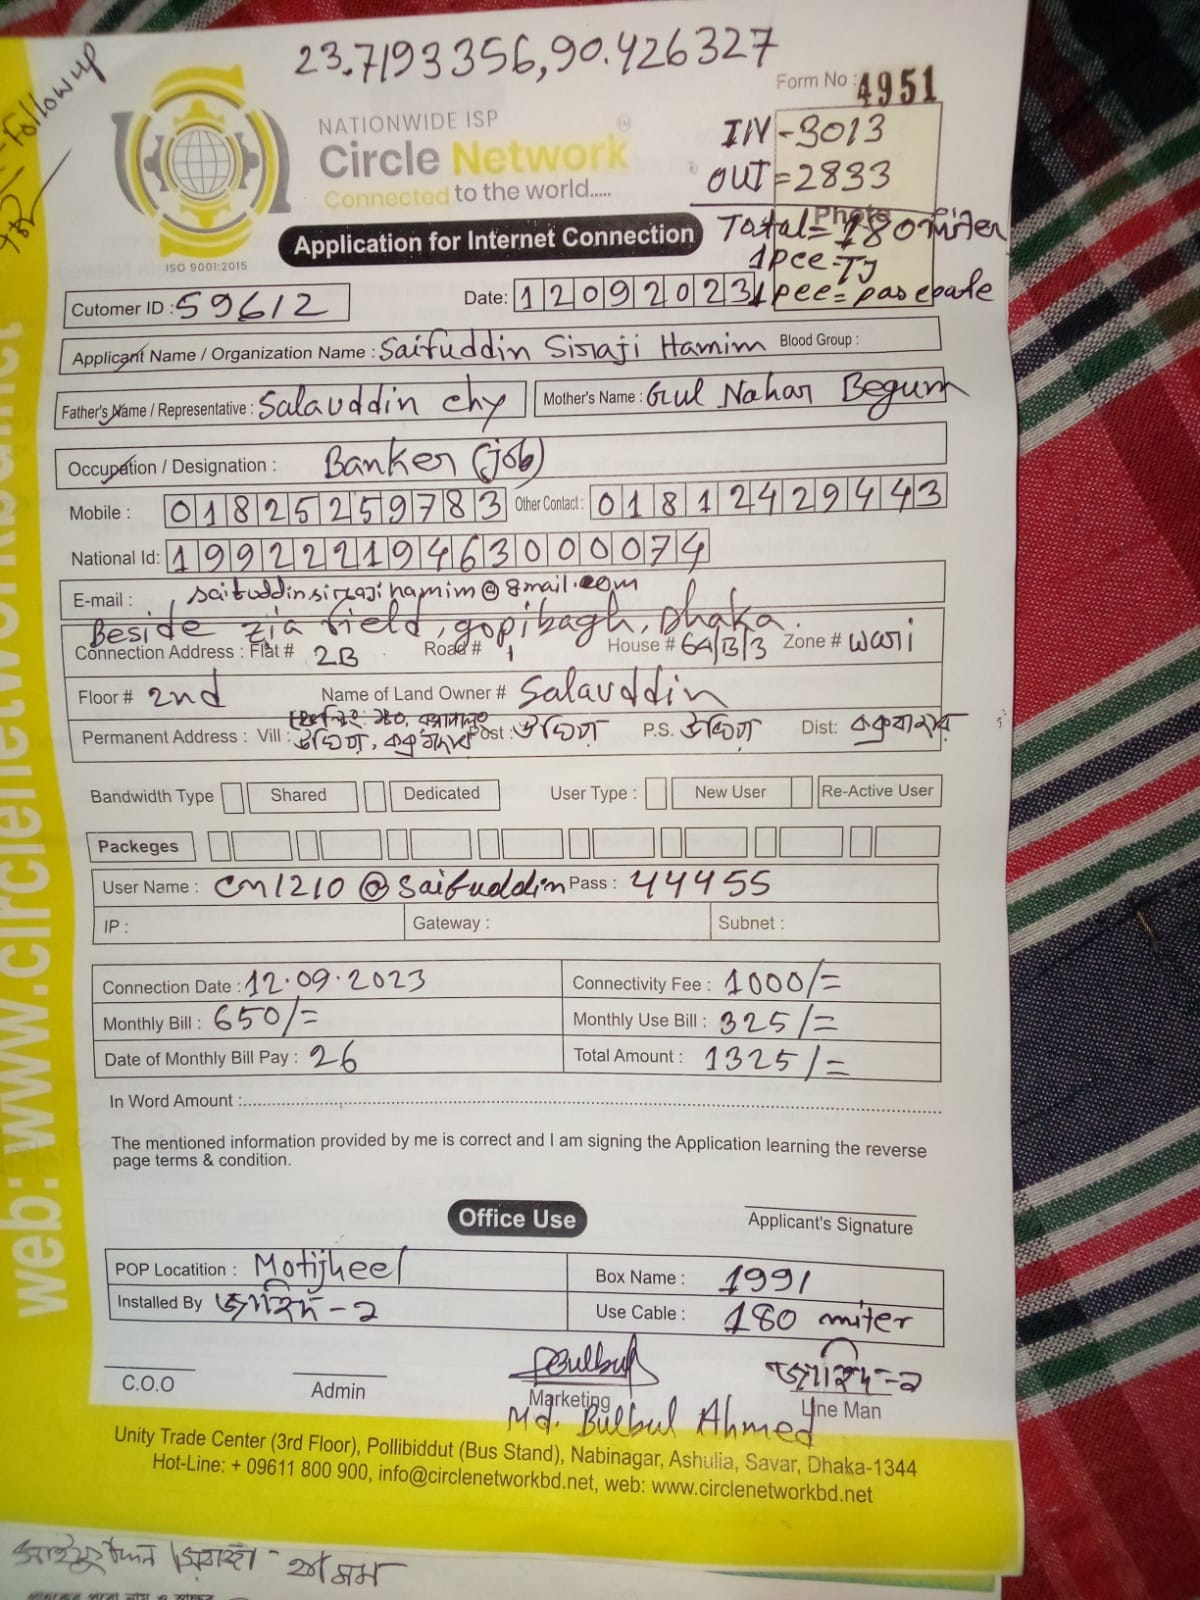 23.7193356,90.426327
Followup
Form No : 4951
NATIONWIDE ISP
Circle Network
Connected to the world.....
ISO 9001:2015
IN - 3013
OUT = 2833
Photo
Total = 180 miter
1 pce = TJ
1 pce =
Application for Internet Connection
Cutomer ID : 59612
Date: 12092023
Applicant Name / Organization Name : Saifuddin Siraji Hamim Blood Group :
Father's Name / Representative : Salauddin chy Mother's Name : Gul Nahar Begum
Occupation / Designation : Banker (job)
Mobile : 01825259783 Other Contact : 01812429443
National Id: 19922219463000074
E-mail : saifuddinsirajihamim@gmail.com
Beside zia field, gopibagh, Dhaka.
Connection Address : Flat # 2B Road # 1 House # 64/B/3 Zone # wari
Floor # 2nd Name of Land Owner # Salauddin
Permanent Address : Vill : Post : P.S. Dist:
Bandwidth Type Shared Dedicated User Type : New User Re-Active User
Packeges
User Name : cn1210@saifuddin Pass : 44455
IP : Gateway : Subnet :
Connection Date : 12.09.2023 Connectivity Fee : 1000/=
Monthly Bill : 650/= Monthly Use Bill : 325/=
Date of Monthly Bill Pay : 26 Total Amount : 1325/=
In Word Amount :
The mentioned information provided by me is correct and I am signing the Application learning the reverse
page terms & condition.
Applicant's Signature
Office Use
POP Locatition : Motijheel Box Name : 1991
Installed By জাহিদ-২ Use Cable : 180 miter
Bulbul জাহিদ-২
C.O.O Admin Marketing Line Man
Md. Bulbul Ahmed
Unity Trade Center (3rd Floor), Pollibiddut (Bus Stand), Nabinagar, Ashulia, Savar, Dhaka-1344
Hot-Line: + 09611 800 900, info@circlenetworkbd.net, web: www.circlenetworkbd.net
web: www.circlenetworkbd.net